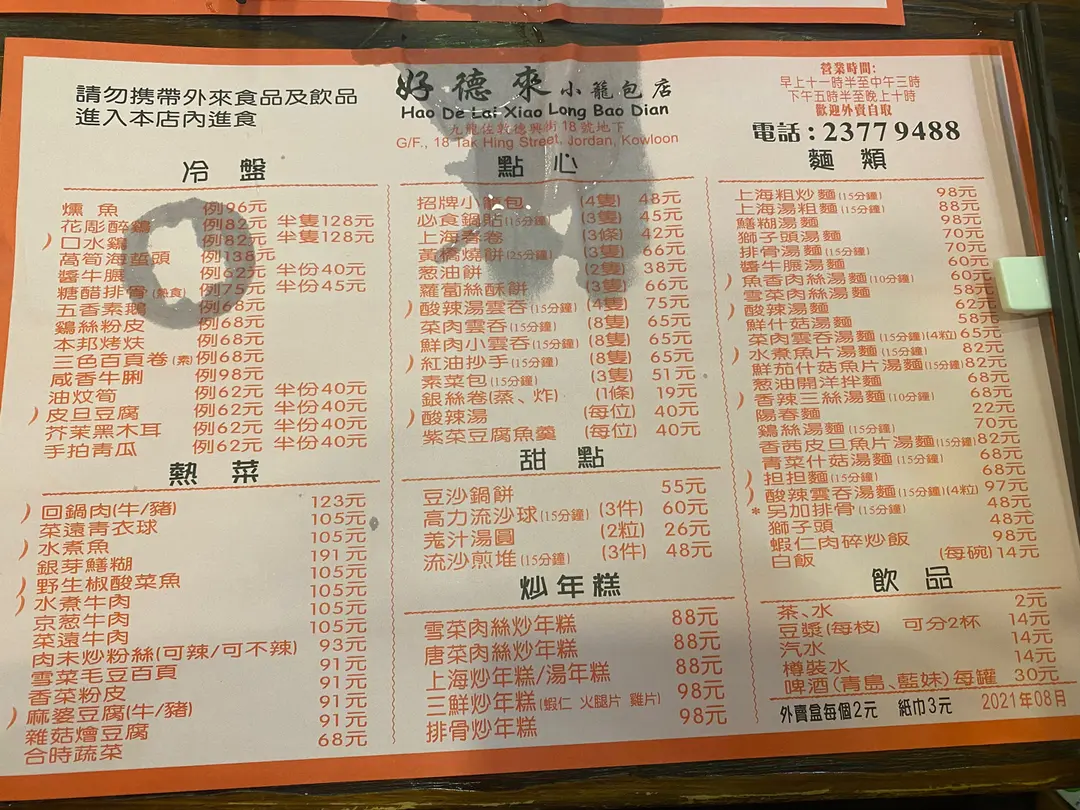 請勿携帶外來食品及飲品
進入本店內進食
好德來小籠包店
Hao De Lai Xiao Long Bao Dian
九龍佐敦德興街18號地下
G/F., 18 Tak Hing Street, Jordan, Kowloon
營業時間:
早上十一時半至中午三時
下午五時半至晚上十時
歡迎外賣自取
電話:23779488
冷盤
燻魚 例96元
花彫醉鷄 例82元 半隻128元
)口水鷄 例82元 半隻128元
萵筍海蜇頭 例138元
醬牛𦟌 例62元 半份40元
糖醋排骨(熱食) 例75元 半份45元
五香素鵝 例68元
鷄絲粉皮 例68元
本邦烤麩 例68元
三色百頁卷(素) 例68元
咸香牛脷 例98元
油炆筍 例62元 半份40元
)皮旦豆腐 例62元 半份40元
芥茉黑木耳 例62元 半份40元
手拍青瓜 例62元 半份40元
熱菜
)回鍋肉(牛/豬) 123元
菜遠青衣球 105元
)水煮魚 105元
銀芽鱔糊 191元
)野生椒酸菜魚 105元
)水煮牛肉 105元
京葱牛肉 105元
菜遠牛肉 105元
肉未炒粉絲(可辣/可不辣) 93元
雪菜毛豆百頁 91元
香菜粉皮 91元
)麻婆豆腐(牛/豬) 91元
雜菇燴豆腐 91元
合時蔬菜 68元
點心
招牌小籠包 (4隻) 48元
必食鍋貼(15分鐘) (3隻) 45元
上海春卷 (3條) 42元
黃橋燒餅(25分鐘) (3隻) 66元
葱油餅 (2隻) 38元
蘿蔔絲酥餅 (3隻) 66元
)酸辣湯雲吞(15分鐘) (4隻) 75元
菜肉雲吞(15分鐘) (8隻) 65元
鮮肉小雲吞(15分鐘) (8隻) 65元
)紅油抄手(15分鐘) (8隻) 65元
素菜包(15分鐘) (3隻) 51元
銀絲卷(蒸、炸) (1條) 19元
)酸辣湯 (每位) 40元
紫菜豆腐魚羹 (每位) 40元
甜點
豆沙鍋餅 55元
高力流沙球(15分鐘) (3件) 60元
羗汁湯圓 (2粒) 26元
流沙煎堆(15分鐘) (3件) 48元
炒年糕
雪菜肉絲炒年糕 88元
唐菜肉絲炒年糕 88元
上海炒年糕/湯年糕 88元
三鮮炒年糕(蝦仁 火腿片 雞片) 98元
排骨炒年糕 98元
麵類
上海粗炒麵(15分鐘) 98元
上海湯粗麵(15分鐘) 88元
鱔糊湯麵 98元
獅子頭湯麵 70元
排骨湯麵(15分鐘) 70元
醬牛𦟌湯麵 60元
)魚香肉絲湯麵(10分鐘) 60元
雪菜肉絲湯麵 58元
)酸辣湯麵 62元
鮮什菇湯麵 58元
菜肉雲吞湯麵(15分鐘)(4粒) 65元
)水煮魚片湯麵(15分鐘) 82元
鮮茄什菇魚片湯麵(15分鐘) 82元
葱油開洋拌麵 68元
)香辣三絲湯麵(10分鐘) 68元
陽春麵 22元
鷄絲湯麵(15分鐘) 70元
香茜皮旦魚片湯麵(15分鐘) 82元
青菜什菇湯麵(15分鐘) 68元
)担担麵(15分鐘) 68元
)酸辣雲吞湯麵(15分鐘)(4粒) 97元
*另加排骨(15分鐘) 48元
獅子頭 48元
蝦仁肉碎炒飯 98元
白飯 (每碗)14元
飲品
茶、水 2元
豆漿(每枝) 可分2杯 14元
汽水 14元
樽裝水 14元
啤酒(青島、藍妹)每罐 30元
外賣盒每個2元 紙巾3元 2021年08月